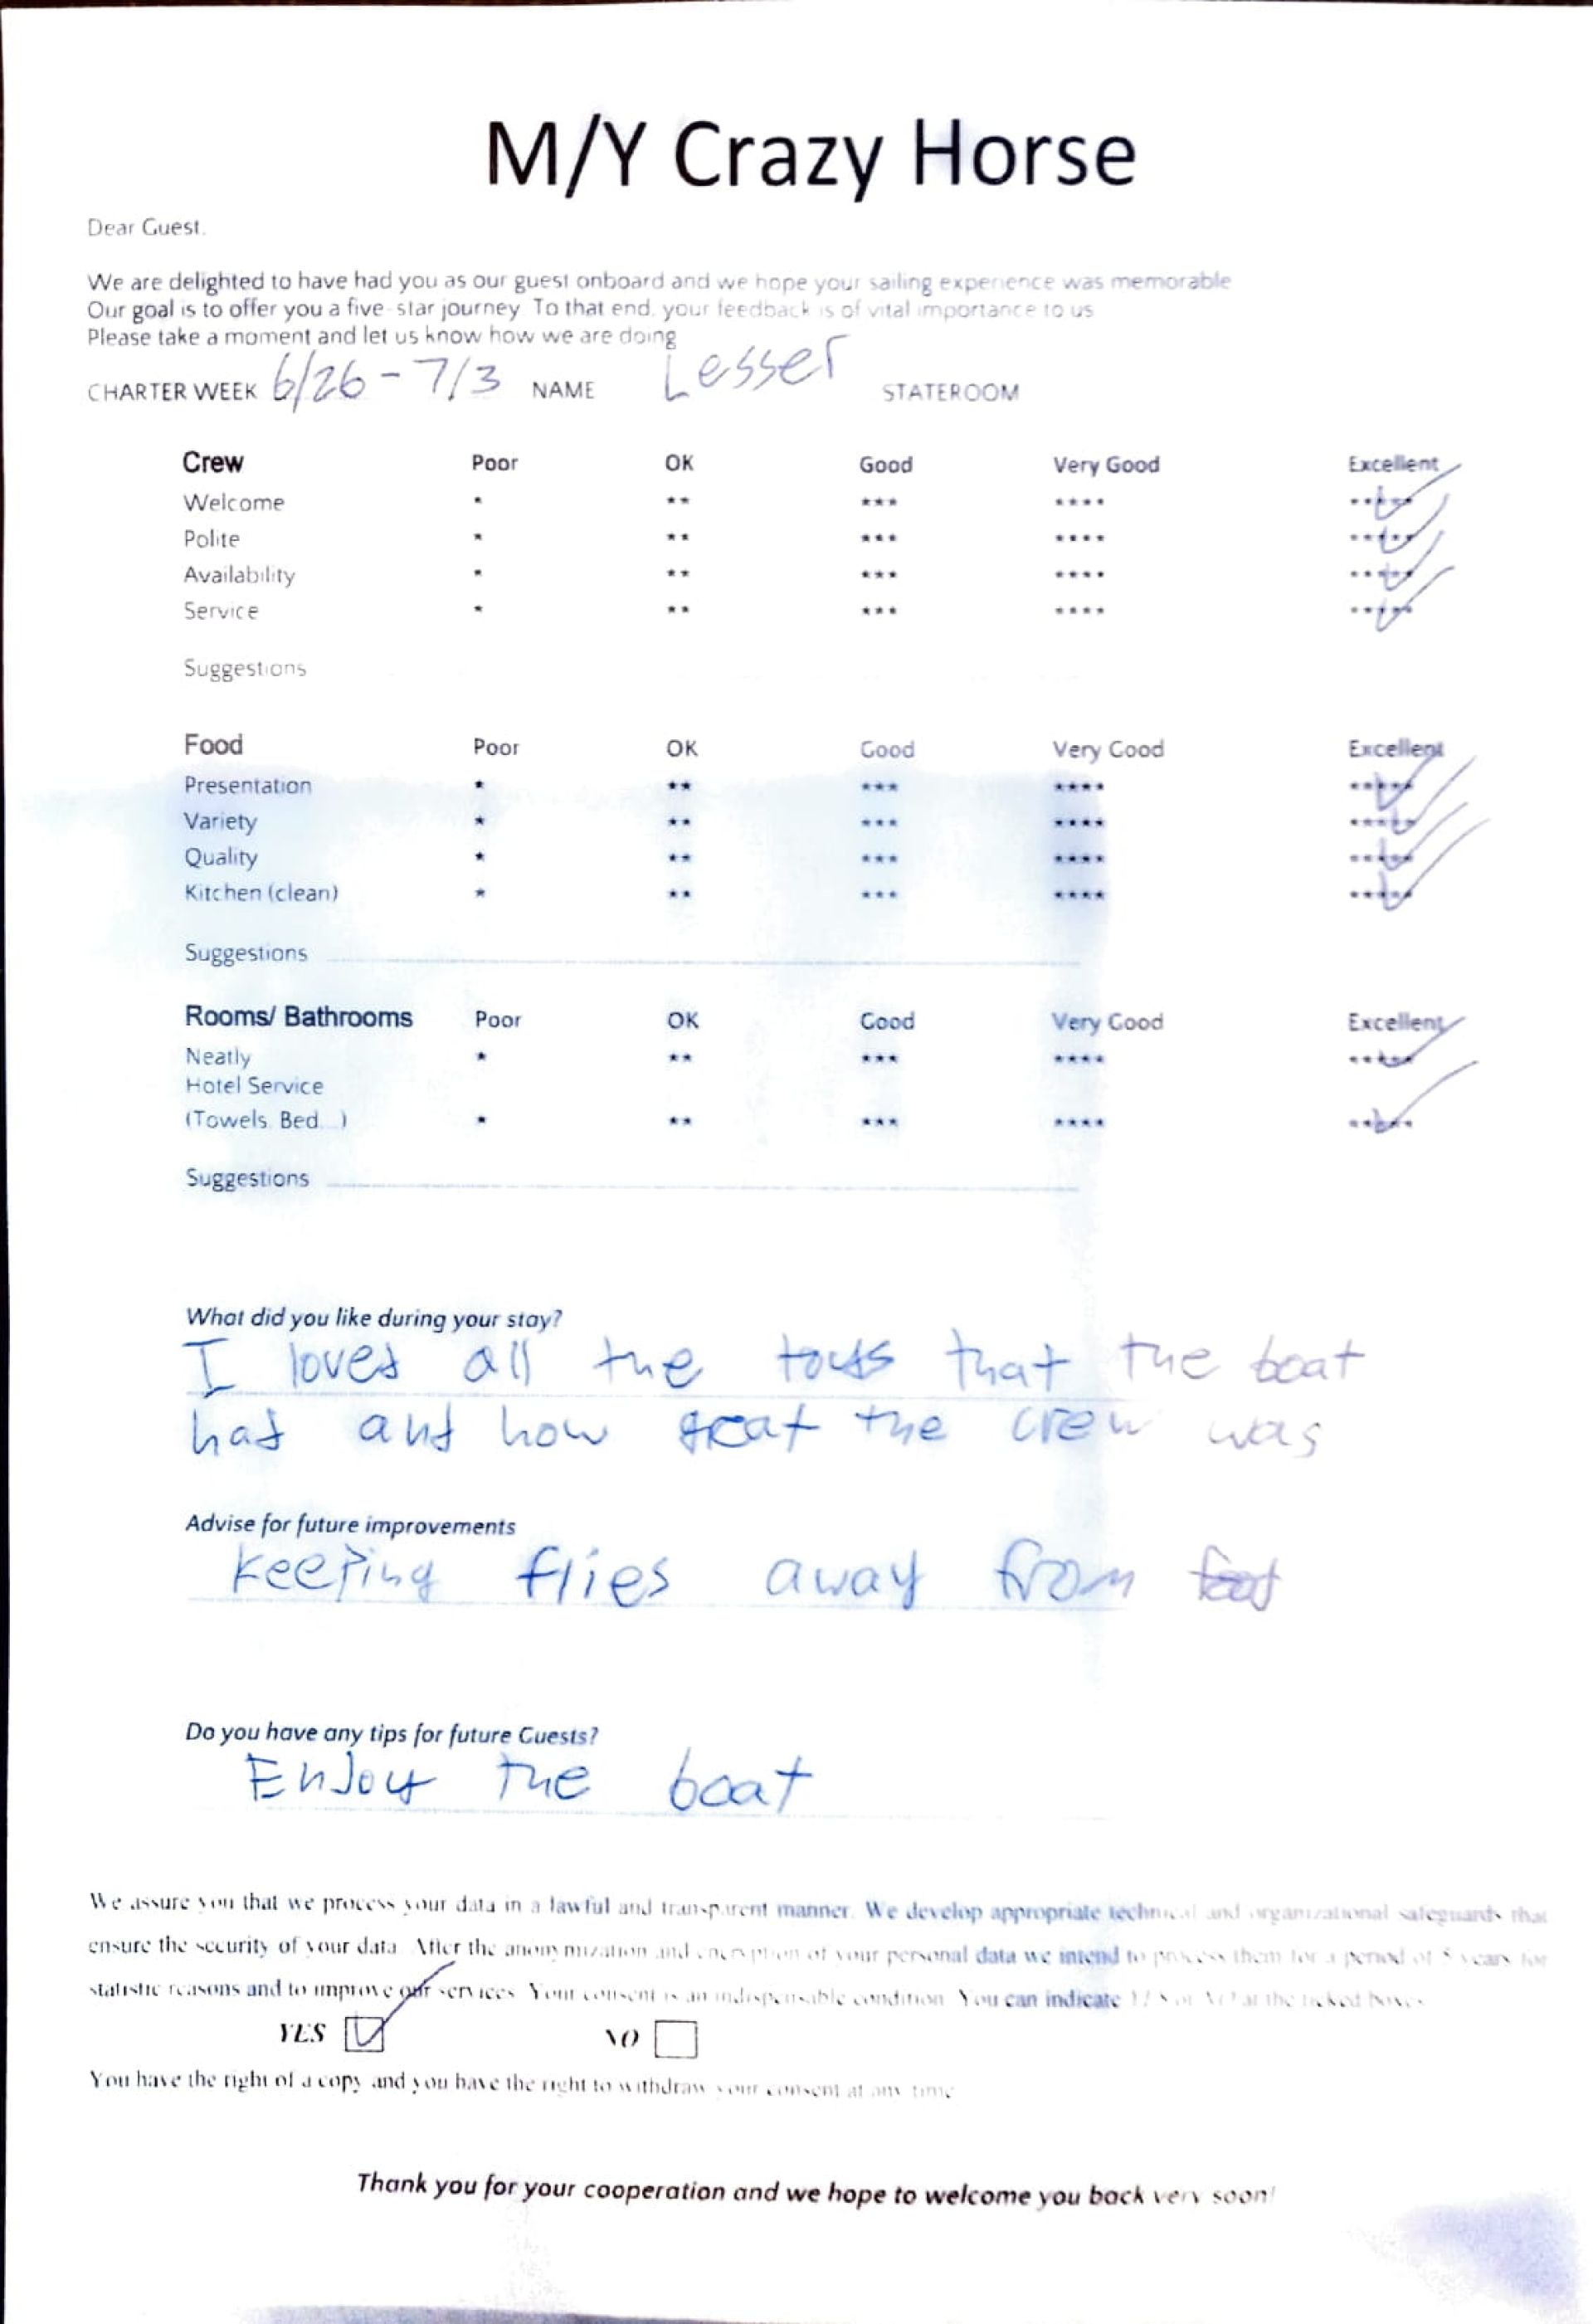 M/Y Crazy Horse
Dear Guest,
We are delighted to have had you as our guest onboard and we hope your sailing experience was memorable
Our goal is to offer you a five-star journey. To that end, your feedback is of vital importance to us
Please take a moment and let us know how we are doing
CHARTER WEEK 6/26 - 7/3 NAME Lesser STATEROOM
Crew Poor OK Good Very Good Excellent
Welcome * ** *** **** *****
Polite * ** *** **** *****
Availability * ** *** **** *****
Service * ** *** **** *****
Suggestions
Food Poor OK Good Very Good Excellent
Presentation * ** *** **** *****
Variety * ** *** **** *****
Quality * ** *** **** *****
Kitchen (clean) * ** *** **** *****
Suggestions
Rooms/ Bathrooms Poor OK Good Very Good Excellent
Neatly * ** *** **** *****
Hotel Service
(Towels, Bed...) * ** *** **** *****
Suggestions
What did you like during your stay?
I loved all the toys that the boat
had and how great the crew was
Advise for future improvements
Keeping flies away from food
Do you have any tips for future Guests?
Enjoy the boat
We assure you that we process your data in a lawful and transparent manner. We develop appropriate technical and organizational safeguards that
ensure the security of your data. After the anonymization and encryption of your personal data we intend to process them for a period of 5 years for
statistic reasons and to improve our services. Your consent is an indispensable condition. You can indicate YES or NO at the ticked boxes
YES NO
You have the right of a copy and you have the right to withdraw your consent at any time
Thank you for your cooperation and we hope to welcome you back very soon!